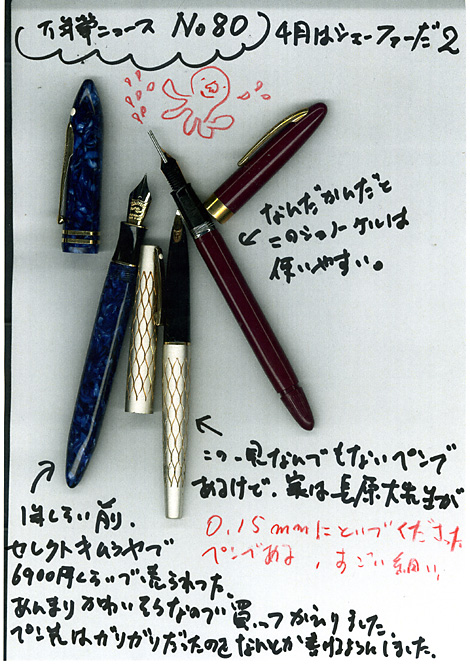 万年筆ニュース No80 4月はシェーファーだ2
なんだかんだと
このシュノーケルは
使いやすい。
この一見なんでもないペンで
あるけど、実は長原大先生が
0.15mmにといでくださった
ペンである、すごい細い。
1年くらい前、
セレクトキムラヤで
6900円くらいで売られてた。
あんまりかわいそうなので買ってかえりました。
ペン先はガリガリだったのをなんとか書けるようにしました。